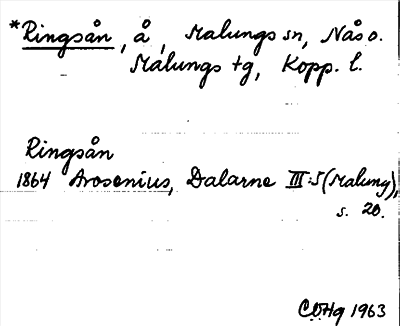 *Ringsån, å, Malungs sn, Nås o.
Malungs tg, Kopp. l.
Ringsån
1864 Arosenius, Dalarne III:5 (Malung),
s. 20.
COHg 1963